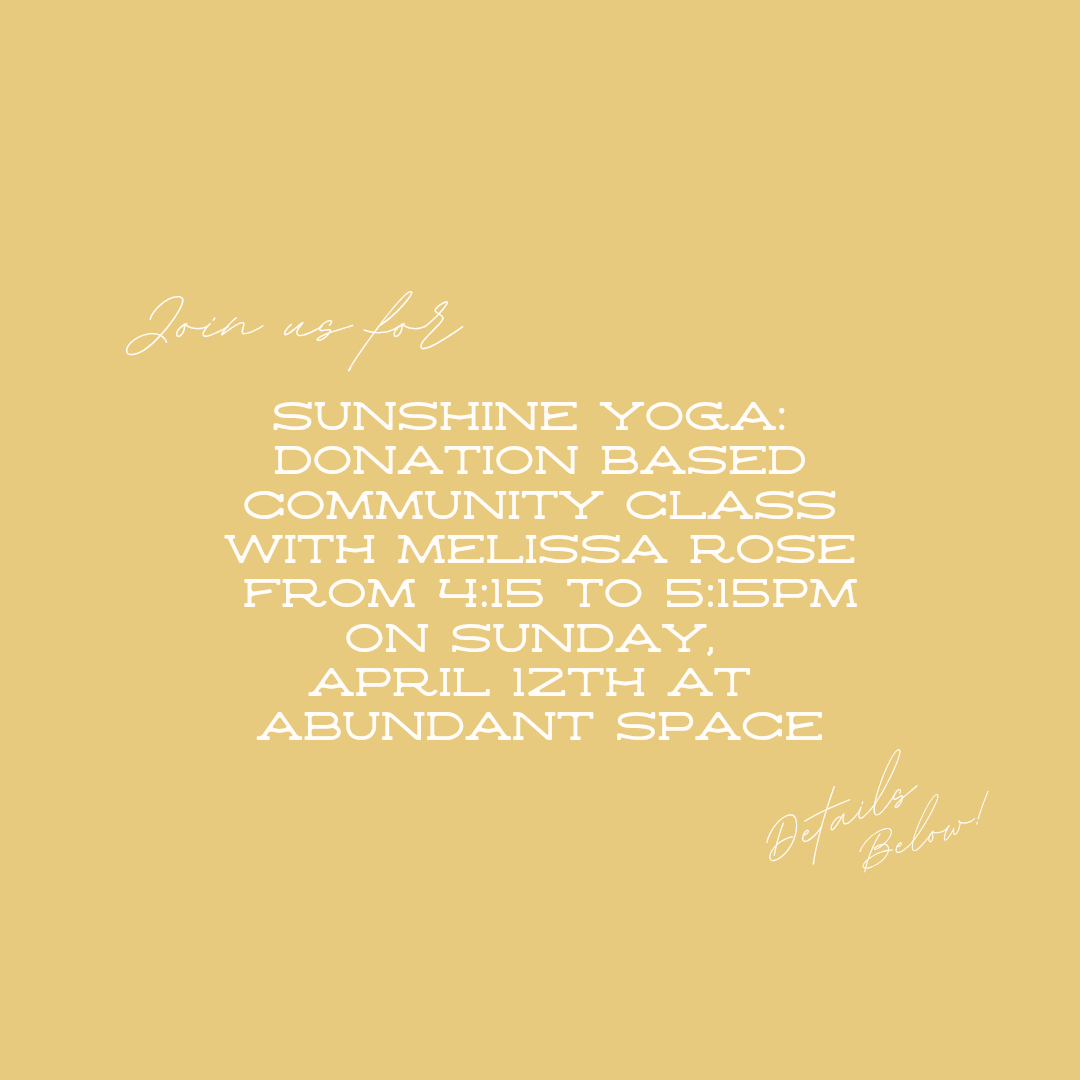 Join us for
SUNSHINE YOGA:
DONATION BASED
COMMUNITY CLASS
WITH MELISSA ROSE
FROM 4:15 TO 5:15PM
ON SUNDAY,
APRIL 12TH AT
ABUNDANT SPACE
Details
Below!